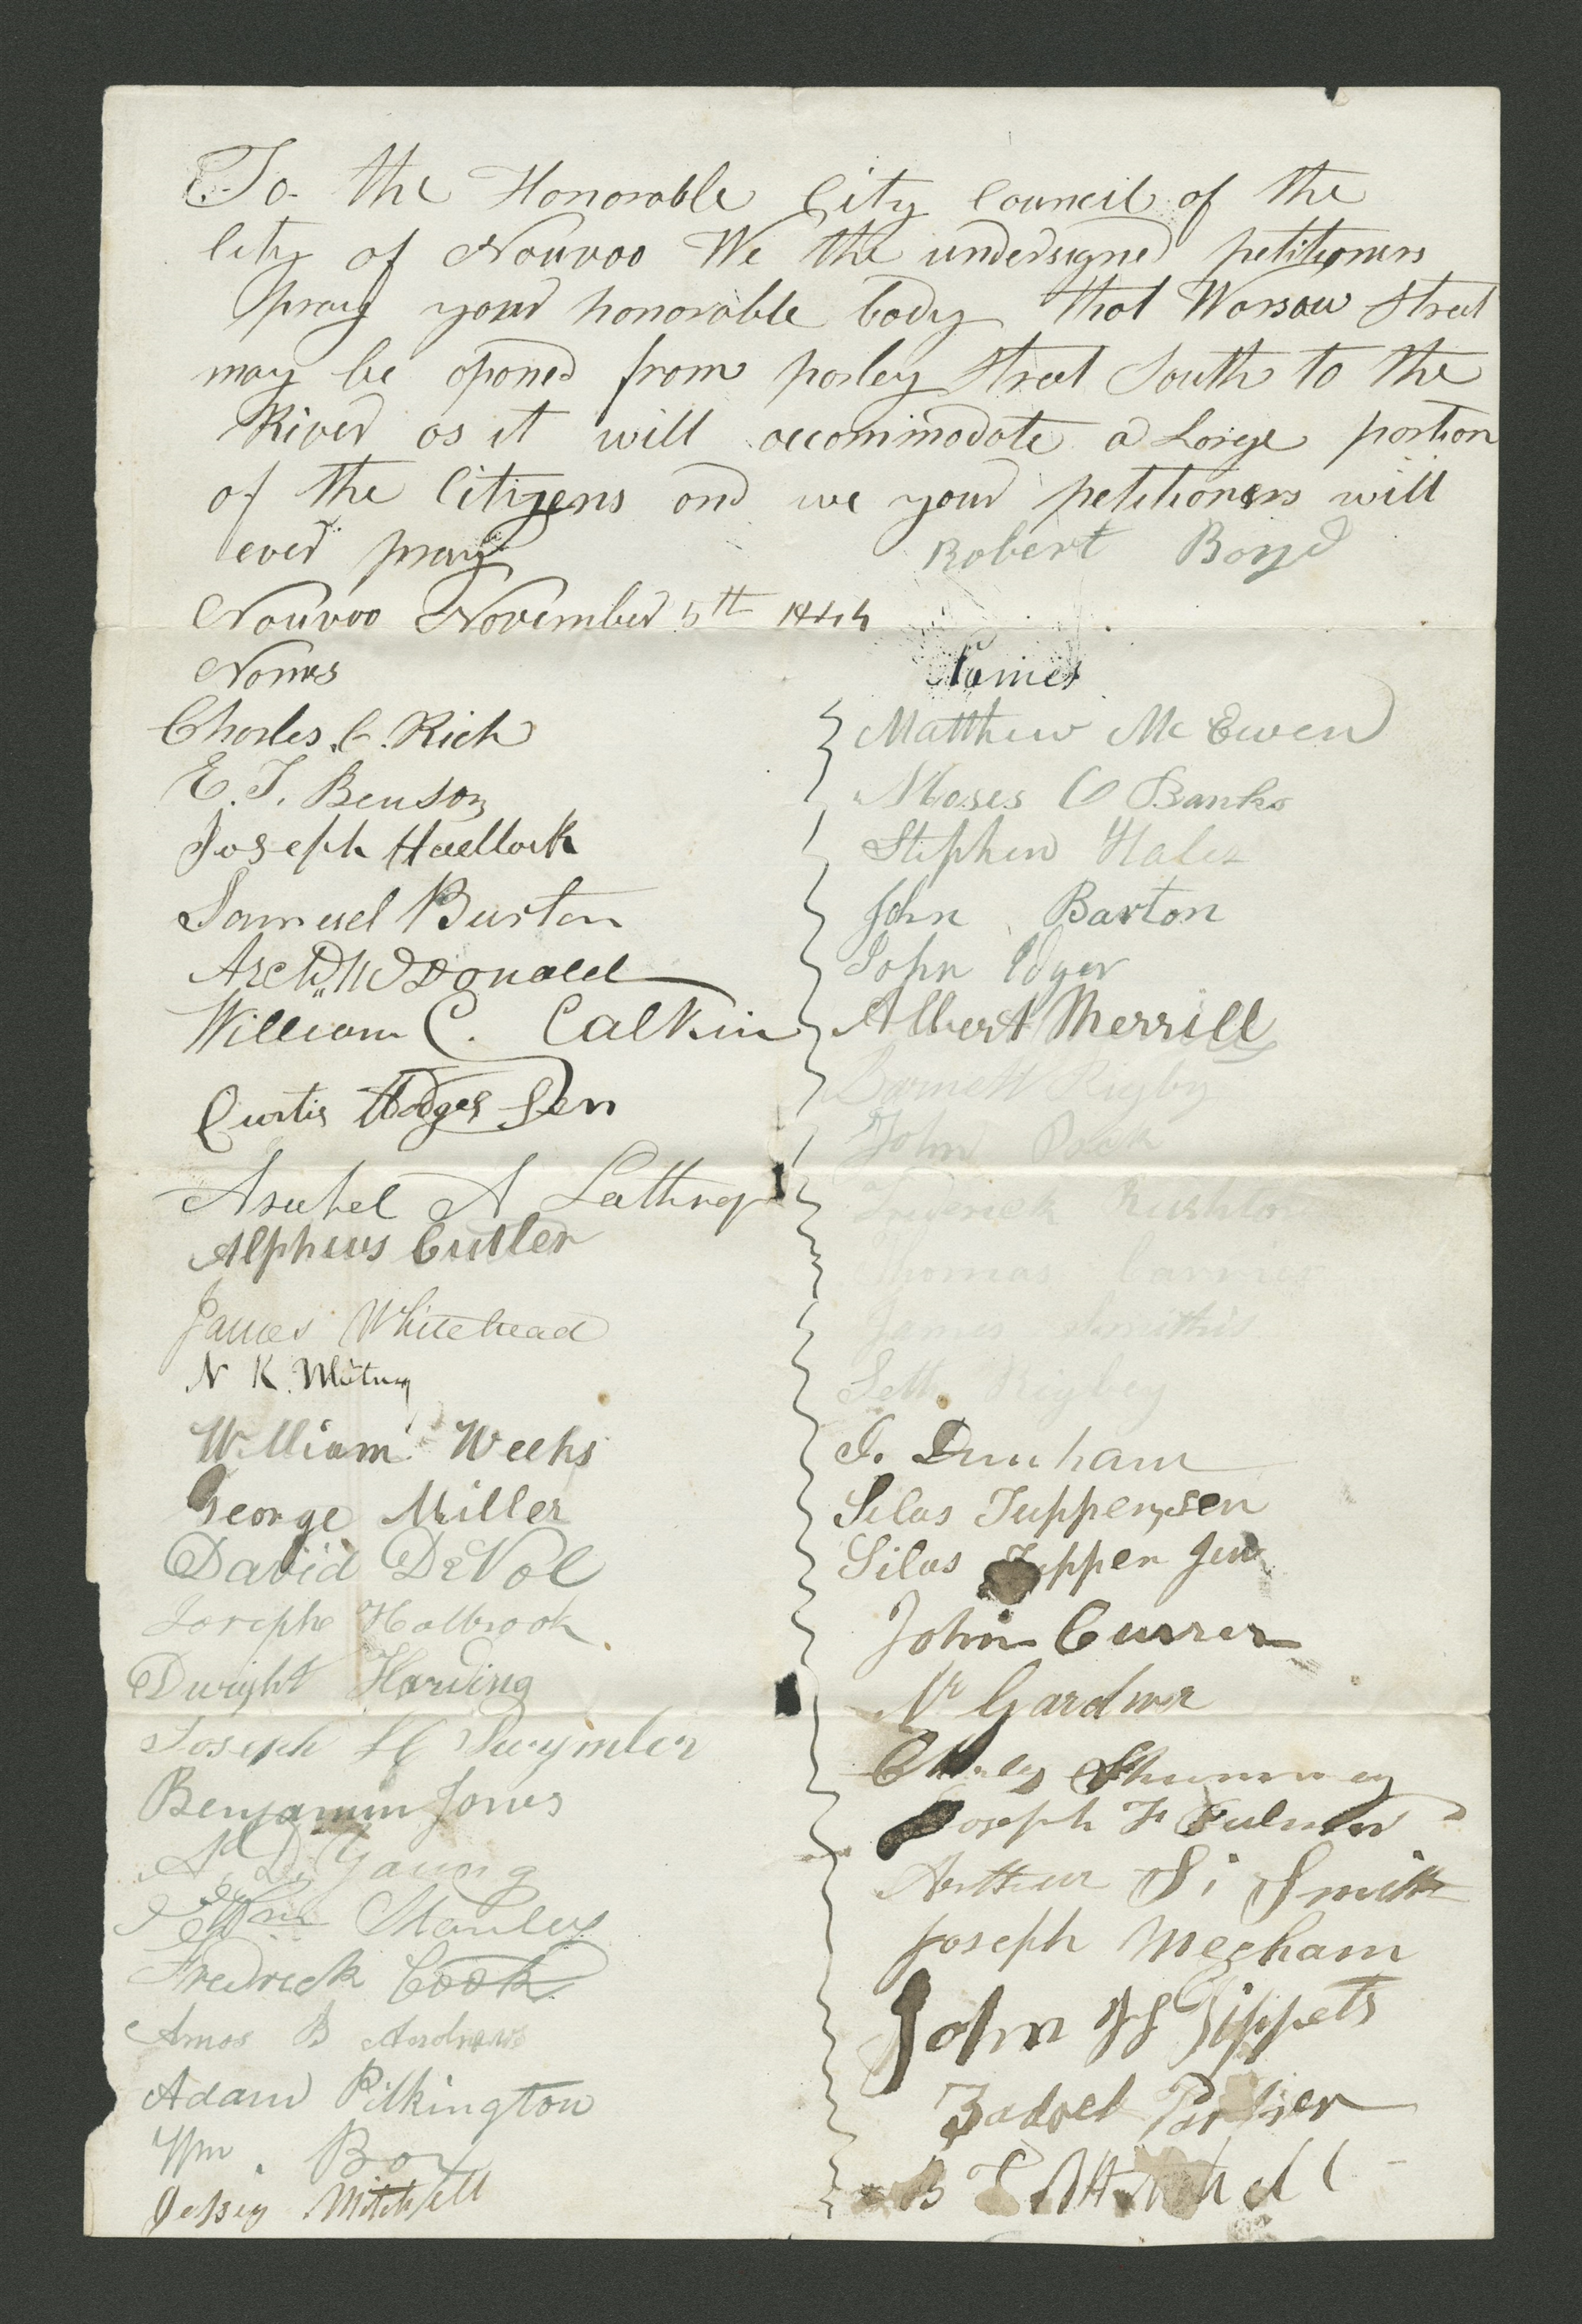 To the Honorable City Council of the
City of Nauvoo We the undersigned petitioners
pray your honorable body that Warsaw Street
may be opened from parley Street South to the
River as it will accommodate a Large portion
of the Citizens and we your petitioners will
ever pray
Robert Boyd
Nauvoo November 5th 1844
Names
Charles C. Rich
E. T. Benson
Joseph Hadlock
Samuel Burton
Archd. McDonald
William C. Calkin
Curtis Hodges Sen
Asahel A Lathrop
Alpheus Cutler
James Whitehead
N K. Whitney
William Weeks
George Miller
David DeVol
Joseph Holbrook
Dwight Harding
Joseph Swymler
Benjamin Jones
A. D. Young
Stanley
Fredrick Cook
Amos B Andrews
Adam Pilkington
Wm.
Jessey Mitchell
Names
Matthew Mc Ewen
Moses Banks
Stephen Hales
John Barton
John Edger
Albert Merrill
Rigby
John
Frederick Rushton
Thomas
James Smithies
Seth Rigbey
J. Dunham
Silas Tupper, sen
Silas Tupper Jun
John Currer
Gardner
Charles Shumway
Joseph F Fulmer
Arthur Smith
Joseph Mecham
John H Tippets
Zadock Parker
B T Mitchell